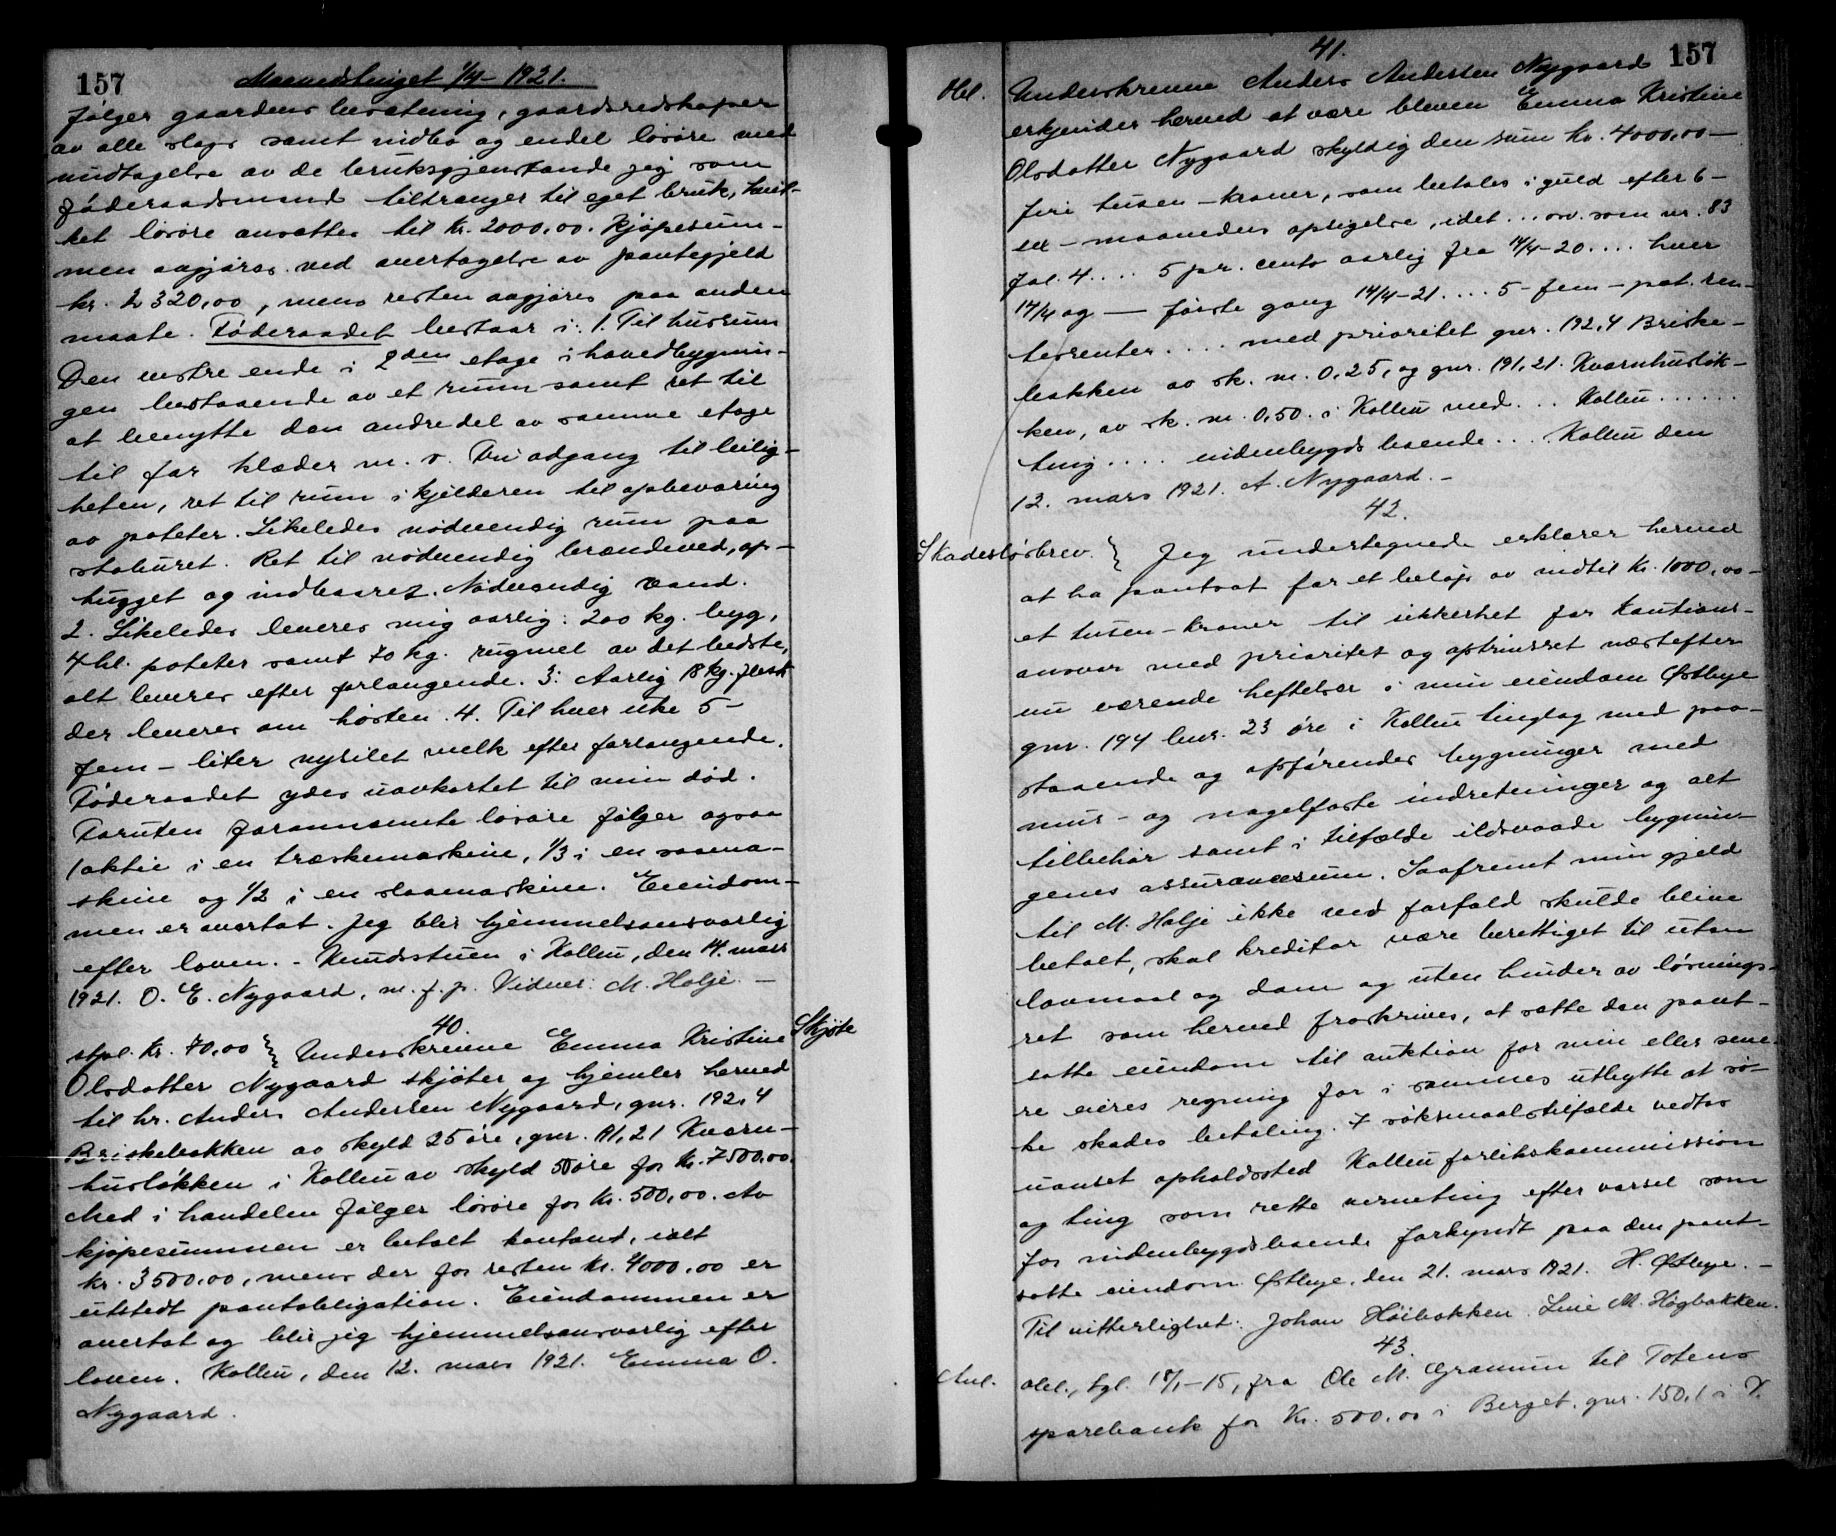 157
Maanedstinget 1/4 - 1921.
følger gaardens besetning, gaardsredskaper
av alle slags samt indbo og endel løsøre med
undtagelse av de bruksgjenstande jeg som
føderaadsmand tiltrænger til eget bruk, hvil-
ket løsøre ansættes til Kr. 2000,00. Kjøpesum-
men avgjøres ved overtagelse av pantegjeld
kr. 2320,00, mens resten avgjøres paa anden
maate. Føderaadet bestaar i: 1. Til husrum
Den vestre ende i 2den etage i hovedbygnin-
gen bestaaende av et rum samt ret til
at benytte den andre del av samme etage
til for klæder m. v. Fri adgang til leilig-
heten, ret til rum i kjelderen til opbevaring
av poteter. Likeledes nødvendig rum paa
staburet. Ret til nødvendig brændeved, op-
hugget og indbaaret. Nødvendig vand.
2. Likeledes leveres mig aarlig: 200 kg. byg,
4 hl. poteter samt 70 kg. rugmel av det bedste,
alt leveres efter forlangende. 3: Aarlig 18 kg. flesk
der leveres om høsten. 4. Til hver uke 5-
fem - liter nysilet melk efter forlangende.
Føderaadet ydes uavkortet til min død.
Foruten forannævnte løsøre følger ogsaa
1 aktie i en træskemaskine, 1/3 i en saama-
skine og 1/2 i en slaamaskine. Eiendom-
men er overtat. Jeg blir hjemmelsansvarlig
efter loven. - Knudsstuen i Kolbu, den 14. mars
1921. O. E. Nygaard, m. f. p. Vidner: M. Holje. -
40.
Skjøte
stpl. Kr. 70,00 } Underskrevne Emma Kristine
Olsdatter Nygaard skjøter og hjemler herved
til hr. Anders Andersen Nygaard, gnr. 192,4
Briskebakken av skyld 25 øre, gnr. 191,21 Kvern-
husløkken i Kolbu av skyld 50 øre for Kr. 7500,00.
Med i handelen følger løsøre for Kr. 500,00. Av
kjøpesummen er betalt kontant, ialt
kr. 3500,00, mens der for resten Kr. 4000,00 er
utstedt pantobligation. Eiendommen er
overtat og blir jeg hjemmelsansvarlig efter
loven. Kolbu, den 12. mars 1921. Emma O.
Nygaard.
157
41.
Obl.
Underskrevne Anders Andersen Nygaard
erkjender herved at være bleven Emma Kristine
Olsdatter Nygaard skyldig den sum kr. 4000,00 -
firi tusen - kroner, som betales i guld efter 6 -
sex - maaneders opsigelse, idet ... osv. som nr. 83
fol. 4 .... 5 pr. cento aarlig fra 14/4-20 .... hver
14/4 og — første gang 14/4-21 .... 5 - fem - pct. ren-
tesrenter .... med prioritet gnr. 192,4 Briske-
bakken av sk. m. 0,25, og gnr. 191,21. Kvernhusløk-
ken, av sk. m. 0,50. i Kolbu med ... Kolbu ......
ting .... utenbygds boende .... Kolbu den
12. mars 1921. A. Nygaard. -
42.
Skadesløsbrev. } Jeg undertegnede erklærer herved
at ha pantsat for et beløp av indtil Kr. 1000,00 -
et tusen - kroner til sikkerhet for kautions-
ansvar med prioritet og optrinsret næstefter
nu værende heftelser i min eiendom Østbye
gnr. 194 bnr. 23 øre i Kolbu tinglag med paa-
staaende og opførendes bygninger med
mur- og nagelfaste indretninger og alt
tilbehør samt i tilfælde ildsvaade bygnin-
genes assurancesum. Saafremt min gjeld
til M. Holje ikke ved forfald skulde blive
betalt, skal kreditor være berettiget til uten
lovmaal og dom og uten hinder av løsnings-
ret som herved fraskrives, at sætte den pant-
satte eiendom til auktion for min eller sene-
re eieres regning for i sammes utbytte at sø-
ke skades betaling. I søksmaalstilfælde vedtas
uanset opholdssted Kolbu forlikskommission
og ting som rette verneting efter varsel som
for utenbygdsboende forkyndt paa den pant-
satte eiendom. Østbye, den 21. mars 1921. H. Østbye. -
Til vitterlighet: Johan Høibakken. Line M. Høgbakken.
43.
Avl.
obl., tgl. 18/1-15, fra Ole M. Gramum til Totens
sparebank for Kr. 500,00 i Berget, gnr. 150,1 i V.